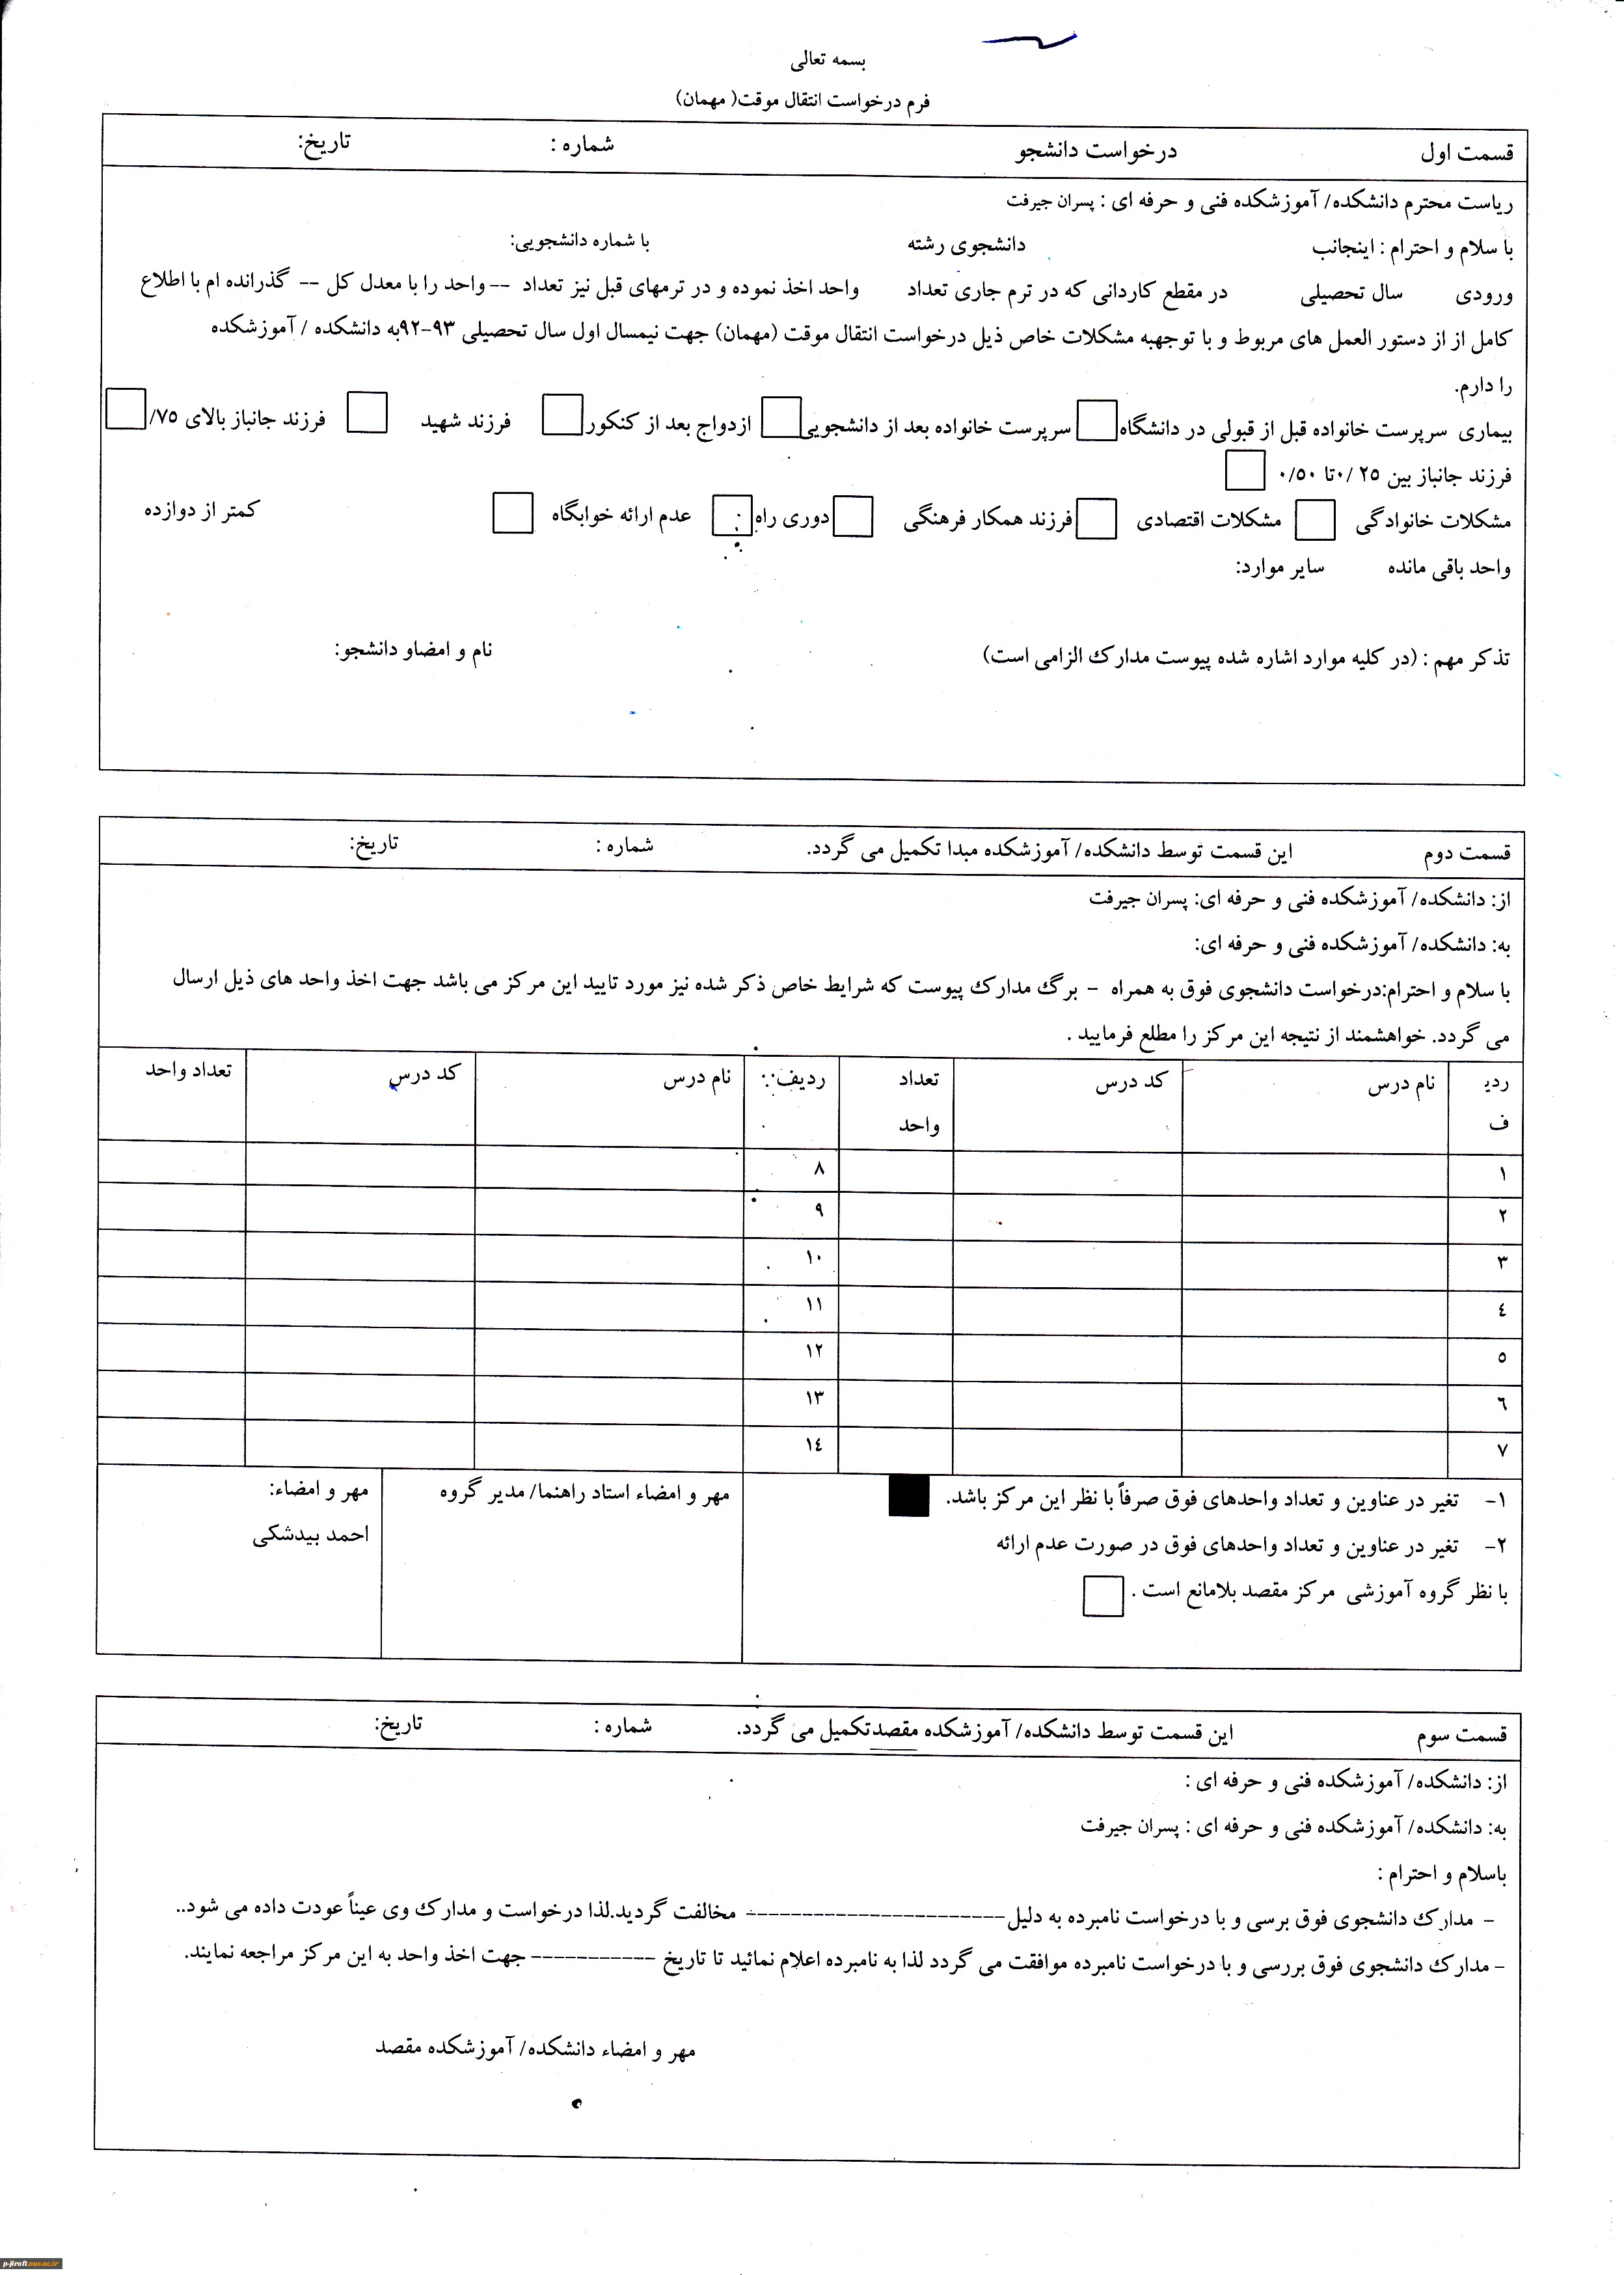 بسمه تعالی
فرم درخواست انتقال موقت( مهمان)
قسمت اول درخواست دانشجو شماره : تاریخ:
ریاست محترم دانشکده/ آموزشکده فنی و حرفه ای : پسران جیرفت
با سلام و احترام : اینجانب دانشجوی رشته با شماره دانشجویی:
ورودی سال تحصیلی در مقطع کاردانی که در ترم جاری تعداد واحد اخذ نموده و در ترمهای قبل نیز تعداد -- واحد را با معدل کل -- گذرانده ام با اطلاع
کامل از از دستور العمل های مربوط و با توجهبه مشکلات خاص ذیل درخواست انتقال موقت (مهمان) جهت نیمسال اول سال تحصیلی ۹۳-۹۲به دانشکده / آموزشکده
را دارم.
بیماری سرپرست خانواده قبل از قبولی در دانشگاه سرپرست خانواده بعد از دانشجویی ازدواج بعد از کنکور فرزند شهید فرزند جانباز بالای ۷۵/
فرزند جانباز بین ۲۵ /۰تا ۰/۵۰
مشکلات خانوادگی مشکلات اقتصادی فرزند همکار فرهنگی دوری راه عدم ارائه خوابگاه کمتر از دوازده
واحد باقی مانده سایر موارد:
تذکر مهم : (در کلیه موارد اشاره شده پیوست مدارک الزامی است) نام و امضاو دانشجو:
قسمت دوم این قسمت توسط دانشکده/ آموزشکده مبدا تکمیل می گردد. شماره : تاریخ:
از: دانشکده/ آموزشکده فنی و حرفه ای: پسران جیرفت
به: دانشکده/ آموزشکده فنی و حرفه ای:
با سلام و احترام:درخواست دانشجوی فوق به همراه - برگ مدارک پیوست که شرایط خاص ذکر شده نیز مورد تایید این مرکز می باشد جهت اخذ واحد های ذیل ارسال
می گردد. خواهشمند از نتیجه این مرکز را مطلع فرمایید .
ردی نام درس کد درس تعداد ردیف نام درس کد درس تعداد واحد
ف واحد
۱ ۸
۲ ۹
۳ ۱۰
٤ ۱۱
٥ ۱۲
٦ ۱۳
۷ ۱٤
۱- تغیر در عناوین و تعداد واحدهای فوق صرفاً با نظر این مرکز باشد. مهر و امضاء استاد راهنما/ مدیر گروه مهر و امضاء:
۲- تغیر در عناوین و تعداد واحدهای فوق در صورت عدم ارائه احمد بیدشکی
با نظر گروه آموزشی مرکز مقصد بلامانع است .
قسمت سوم این قسمت توسط دانشکده/ آموزشکده مقصدتکمیل می گردد. شماره : تاریخ:
از: دانشکده/ آموزشکده فنی و حرفه ای :
به: دانشکده/ آموزشکده فنی و حرفه ای : پسران جیرفت
باسلام و احترام :
- مدارک دانشجوی فوق برسی و با درخواست نامبرده به دلیل----------------------- مخالفت گردید.لذا درخواست و مدارک وی عیناً عودت داده می شود..
- مدارک دانشجوی فوق بررسی و با درخواست نامبرده موافقت می گردد لذا به نامبرده اعلام نمائید تا تاریخ ----------- جهت اخذ واحد به این مرکز مراجعه نمایند.
مهر و امضاء دانشکده/ آموزشکده مقصد
p-jiroft.nus.ac.ir